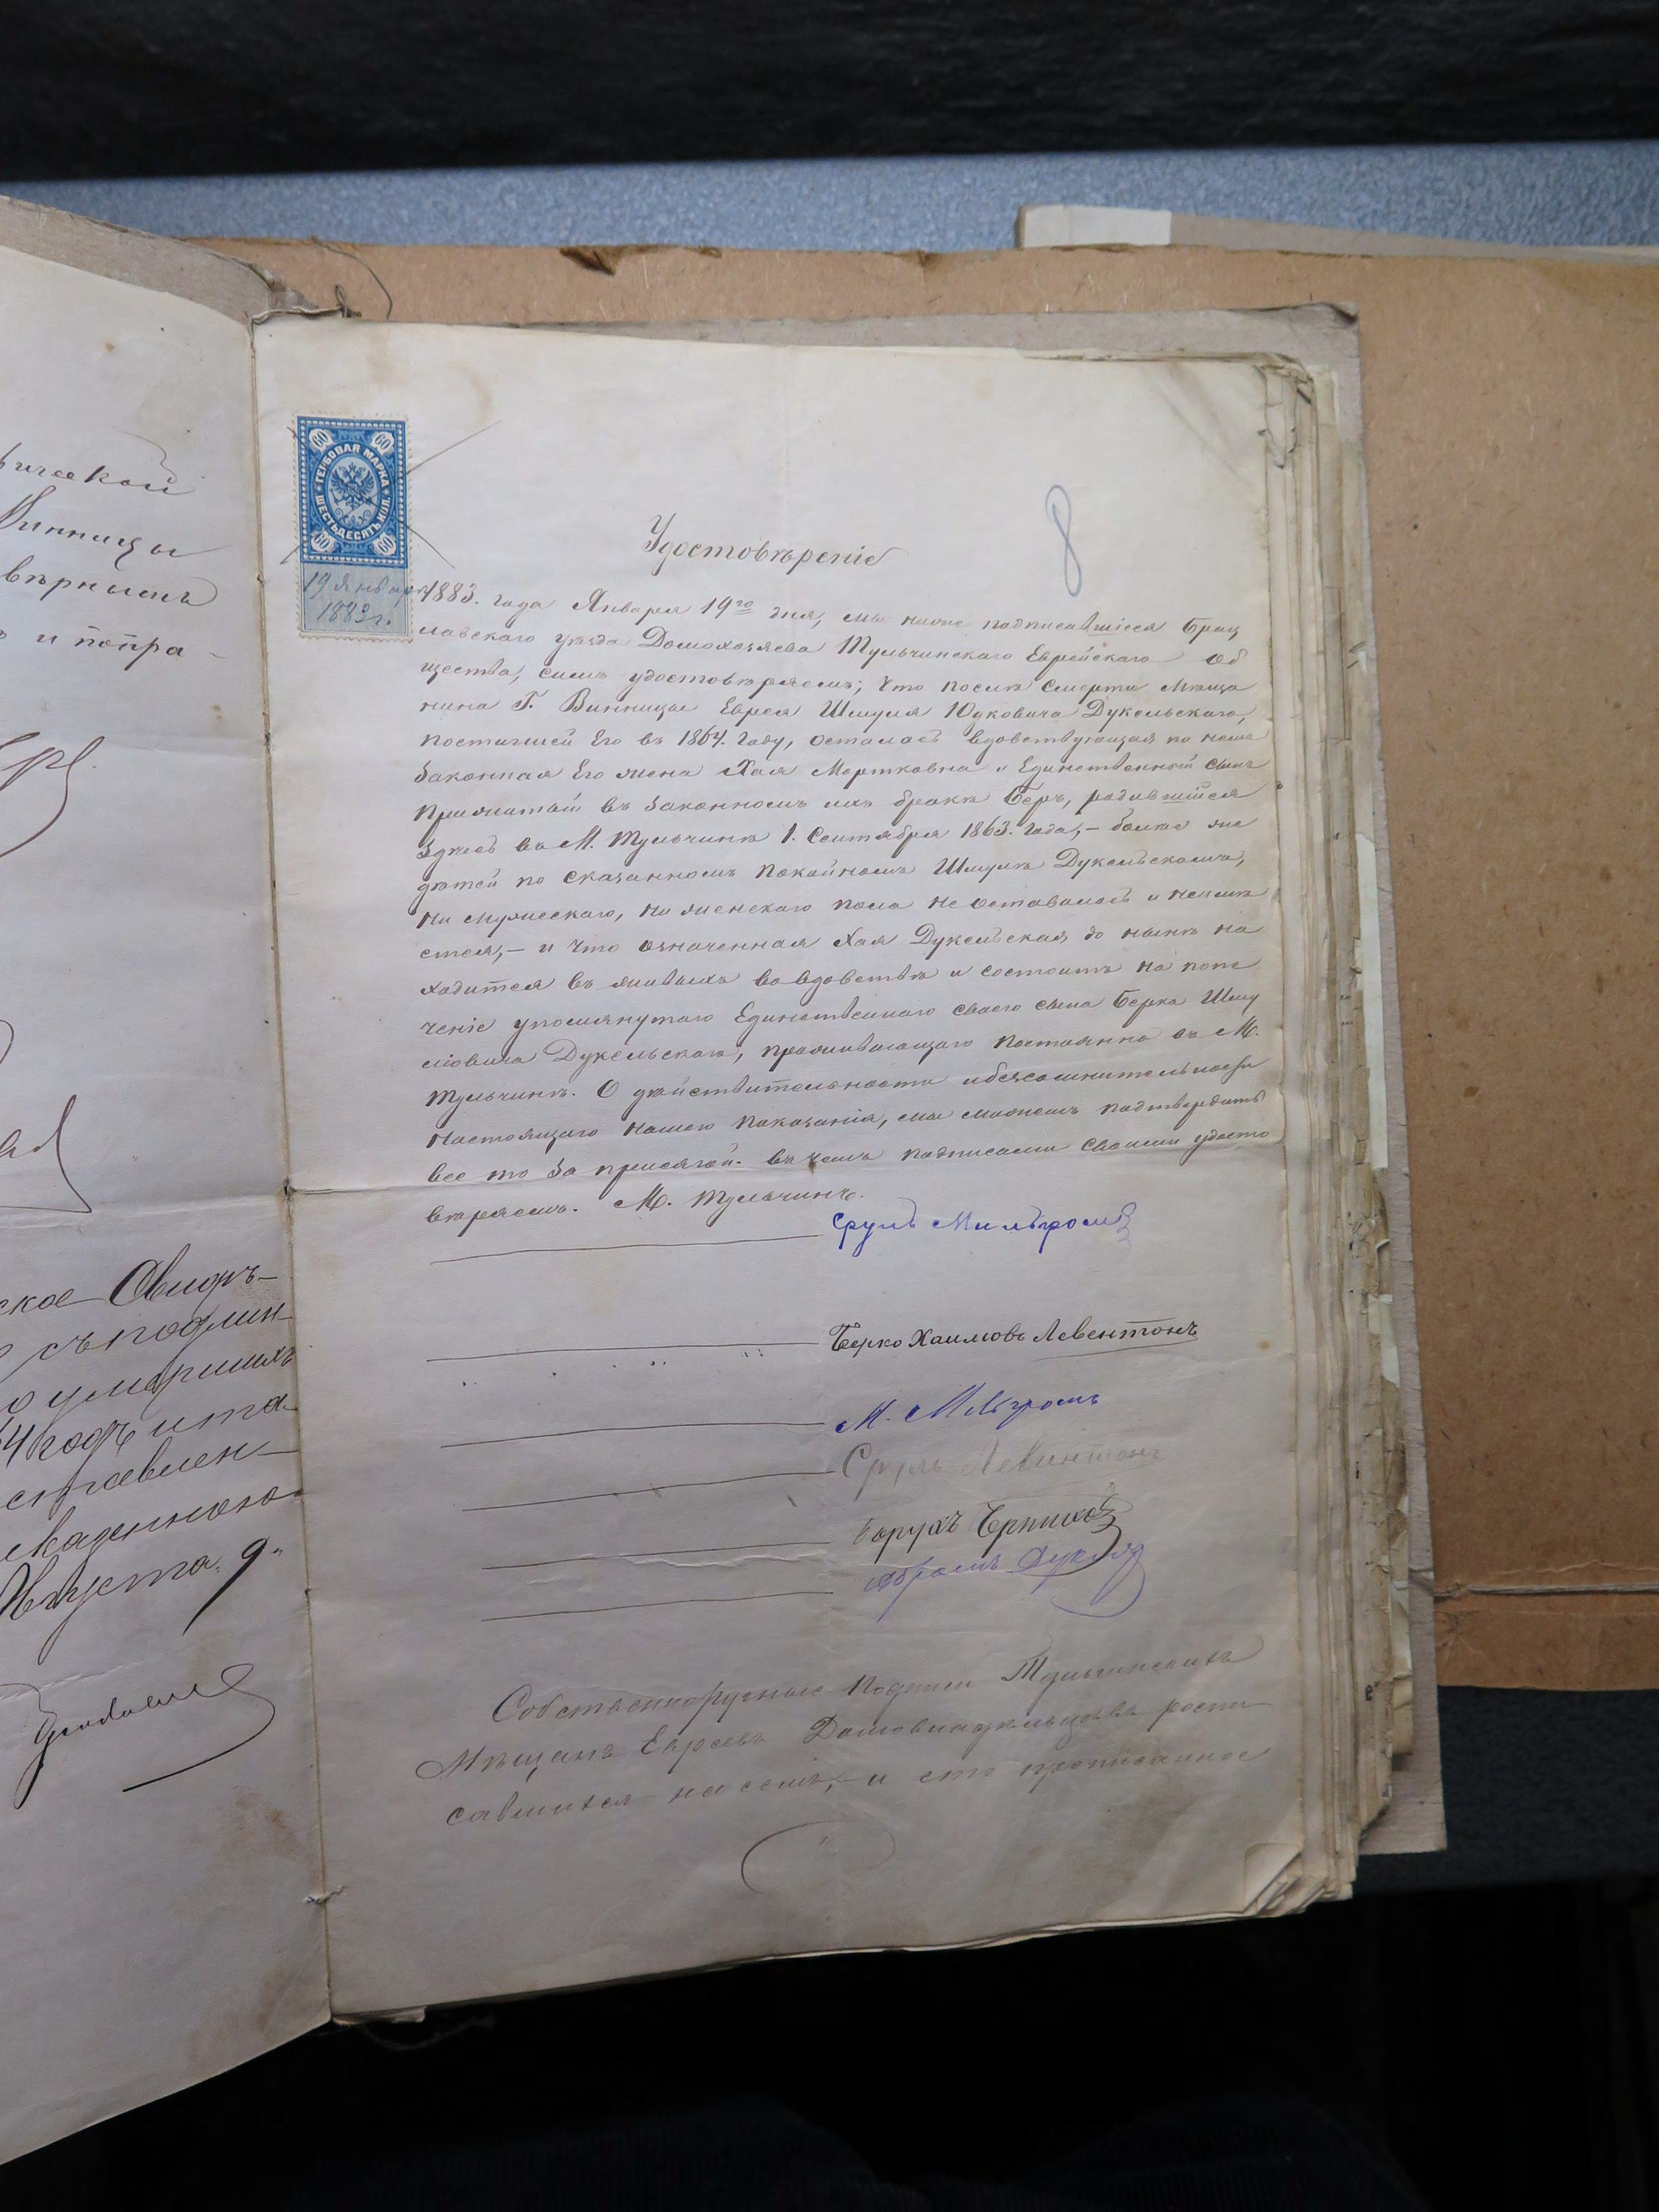 ической
Винницы
вѣрнымъ
и попра-
ское Свидѣ-
съ подлин-
о умершихъ
4 годъ и та-
ставлен-
Августа 9"
ГЕРБОВАЯ МАРКА
ШЕСТЬДЕСЯТЪ КОП.
60 60
60 60
19 Января
1883 г.
8
Удостовѣреніе
1883. года Января 19го дня, мы ниже подписавшіеся Брац
лавскаго уѣзда Домохозяева Тульчинскаго Еврейскаго Об
щества, симъ удостовѣряемъ; что послѣ смерти Мѣща
нина Г. Винницы Еврея Шмуля Юдковича Дукельскаго,
постигшей Его въ 1864. году, осталась вдовствующая по немъ
Законная Его жена Хая Мортковна и Единственный сынъ
прижитый въ Законномъ ихъ бракѣ Беръ, родившійся
Здѣсь въ М. Тульчинѣ 1. Сентября 1863. года, – болѣе же
дѣтей по сказанномъ покойномъ Шмулѣ Дукельскомъ,
ни мужескаго, ни женскаго пола не оставалось и неимѣ
ется, – и что означенная Хая Дукельская до нынѣ на
ходится въ живыхъ во вдовствѣ и состоитъ на попе
ченіе упомянутаго Единственнаго своего сына Берка Шму
ліовича Дукельскаго, проживающаго постоянно въ М.
Тульчинѣ. О дѣйствительности и безсомнительности
Настоящаго нашего показанія, мы можемъ подтвердить
все то за присягой. въ чемъ подписами своими удосто
вѣряемъ. М. Тульчинъ.
Сруль Мильгромъ
Берко Хаимовъ Левентонъ
М. Мильгромъ
Сруль Левинтонъ
Борухъ
Абрамъ
Собственноручные подписи Тульчинскихъ
Мѣщанъ Евреевъ Домовладельцевъ роспи
савшихся на семъ, – и сто прописанное